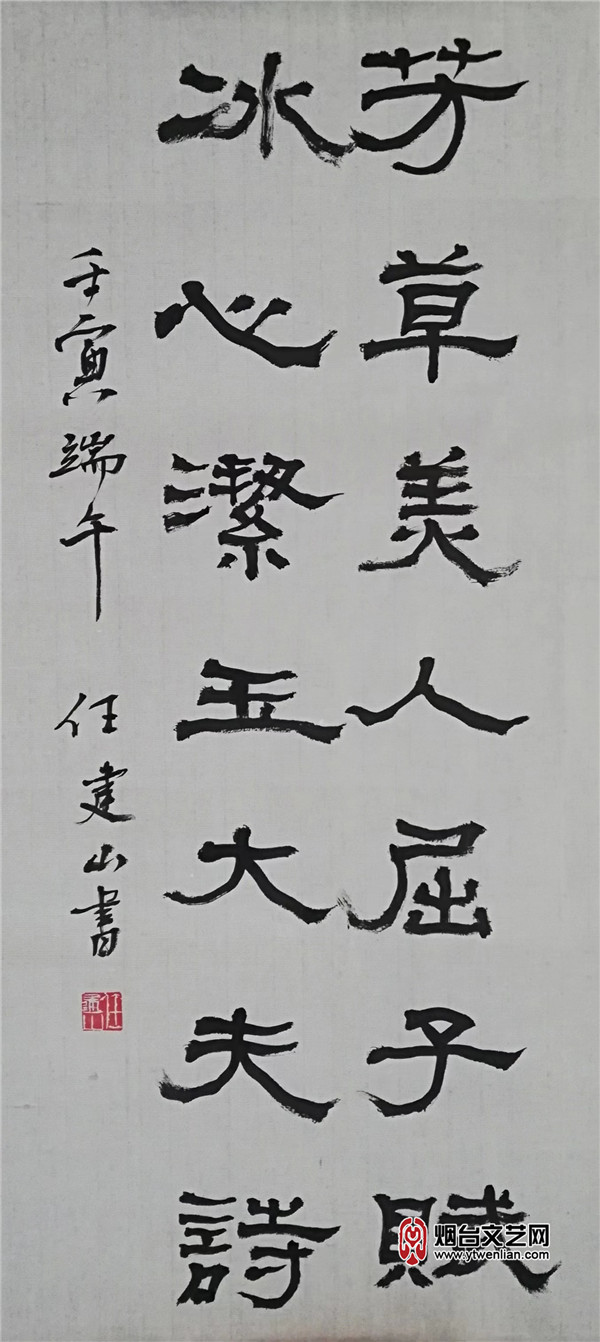 芳草美人屈子賦
冰心潔玉大夫詩
壬寅端午 任建山書
烟台文艺网
www.ytwenlian.com